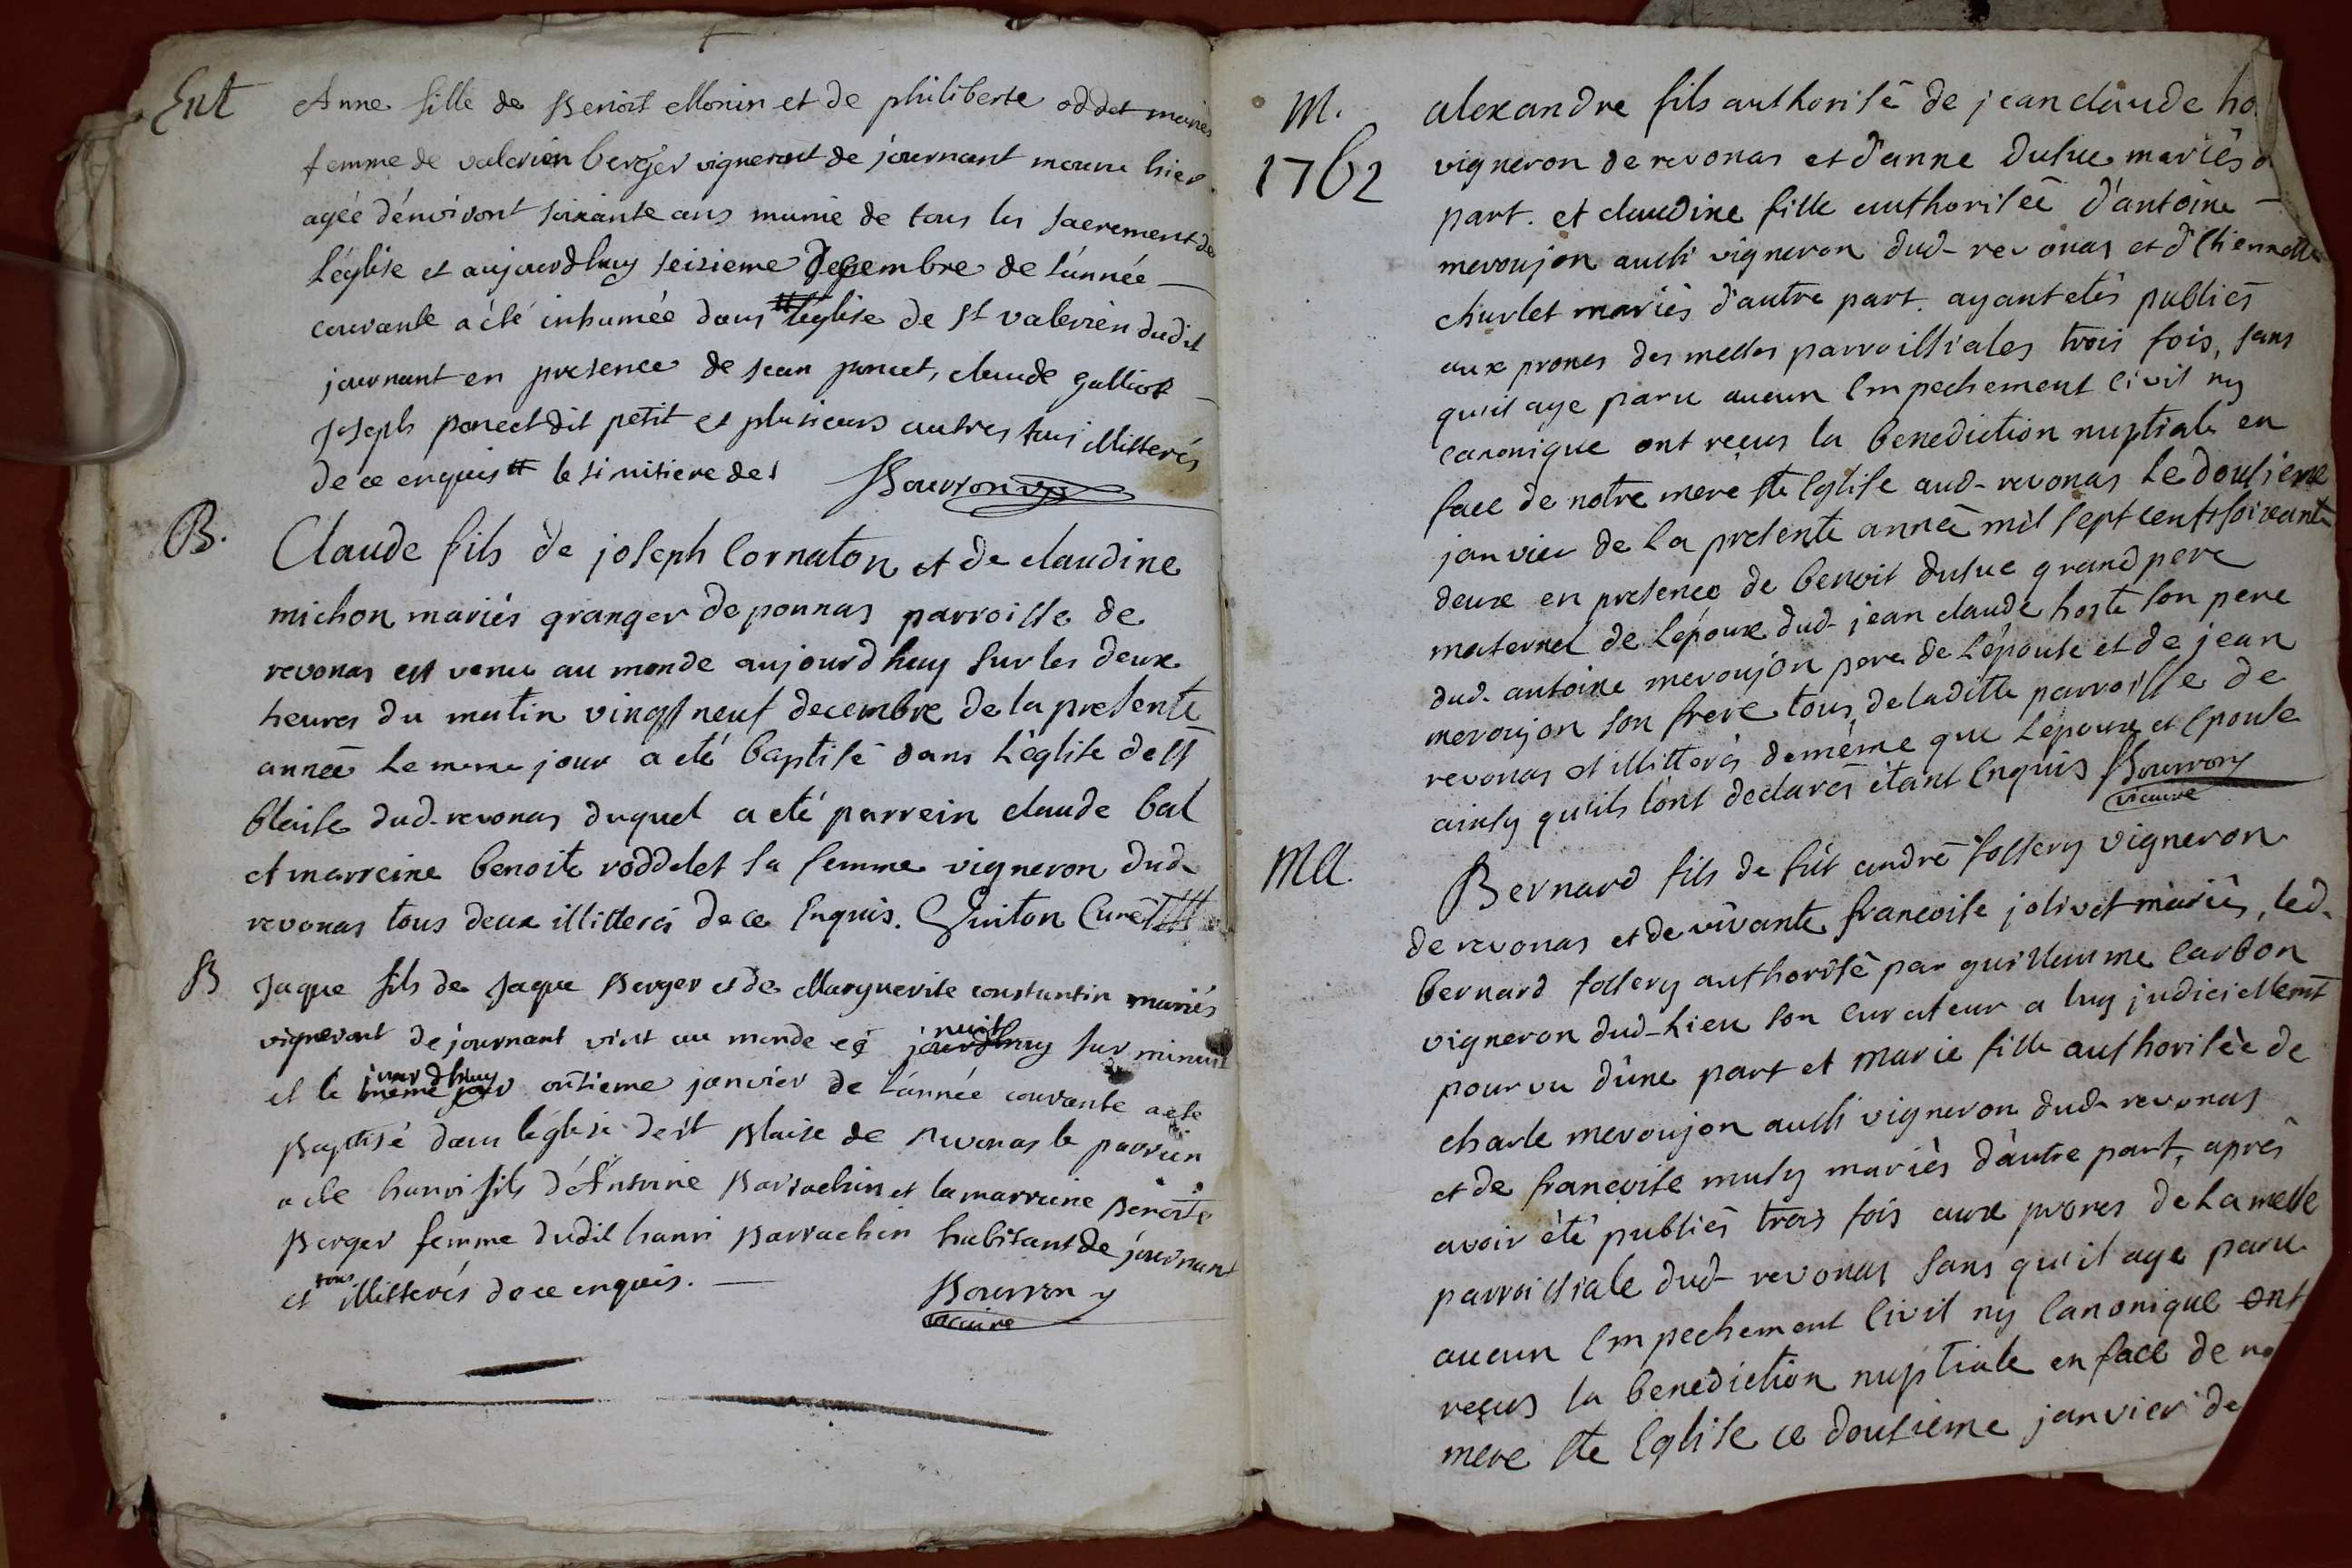 Ent
Anne fille de Benoit Monin et de philiberte oddet mariés
femme de valerien berger vigneront de journant morue hier
agée d'environt soixante ans munie de tous les sacrement de
L'église et aujourdhuy seisieme decembre de l'année
courante a été inhumée dans # l'église de St valerien dudit
journant en presence de jean poncet, claude galliot
Joseph poncet dit petit et plusieurs autres tous illitterés
de ce enquis # le simitiere de s Bourron
B.
Claude fils de joseph Cornaton et de claudine
michon mariés granger de ponnas parroisse de
revonas est venu au monde aujourd huy sur les deux
heures du matin vingt neuf decembre de la presente
année le meme jour a eté baptisé dans L'église de St
blaise dud. revonas duquel a eté parrein claude bal
et marreine benoite roddelet sa femme vigneron dud.
revonas tous deux illitterés de ce Enquis. Guiton Curé
B
Jaque fils de Jaque Berger et de Marguerite constantin mariés
vigneront de journant vint au monde nuit jourdhuy sur minuit
et le jourdhuy meme jour ontieme janvier de l'année courante a eté
Baptisé dans l'église de st Blaise de Revonas le parrien
a ete hanri fils d'Antoine Barrachin et la marreine Benoite
Berger femme dudit hanri Barrachin habitant de journant
et tous illitterés de ce enquis.
Bourron
vicaire
M.
1762
alexandre fils authorisé de jean claude ho
vigneron de revonas et d'anne dusuc mariés d
part. et claudine fille authorisée d'antoine
meroujon aussi vigneron dud- revonas et d'Etiennette
churlet mariés d'autre part. ayant etés publiés
aux prones des messes parroissiales trois fois, sans
qu'il aye paru aucun Empechement Civil ny
canonique ont reçus la benediction nuptiale en
face de notre mere ste Eglise aud- revonas Le dousieme
janvier de La presente année mil sept cents soixante
deux en presence de benoit dusuc grand pere
maternel de L'époux dud- jean claude hoste son pere
dud. antoine meroujon pere de L'épouse et de jean
meroujon son frere tous de laditte parroisse de
revonas et illitterés de même que L'epoux et Epouse
ainsy qu'ils l'ont declarés étant Enquis Bourron
vicaire
Ma.
Bernard fils de fût andré follery vigneron
de revonas et de vivante francoise jolivet mariés, led.
bernard follery authorisé par guillaume Carbon
vigneron dud-lieu son curateur a luy judiciellemt
pourvu d'une part et Marie fille authorisée de
charle meroujon aussi vigneron dud- revonas
et de francoise musy mariés d'autre part, aprés
avoir été publiés trois fois aux prones de La messe
parroissiale dud- revonas sans qu'il aye paru
aucun Empechement Civil ny Canonique ont
reçus la benediction nuptiale en face de no
mere ste Eglise ce dousieme janvier de